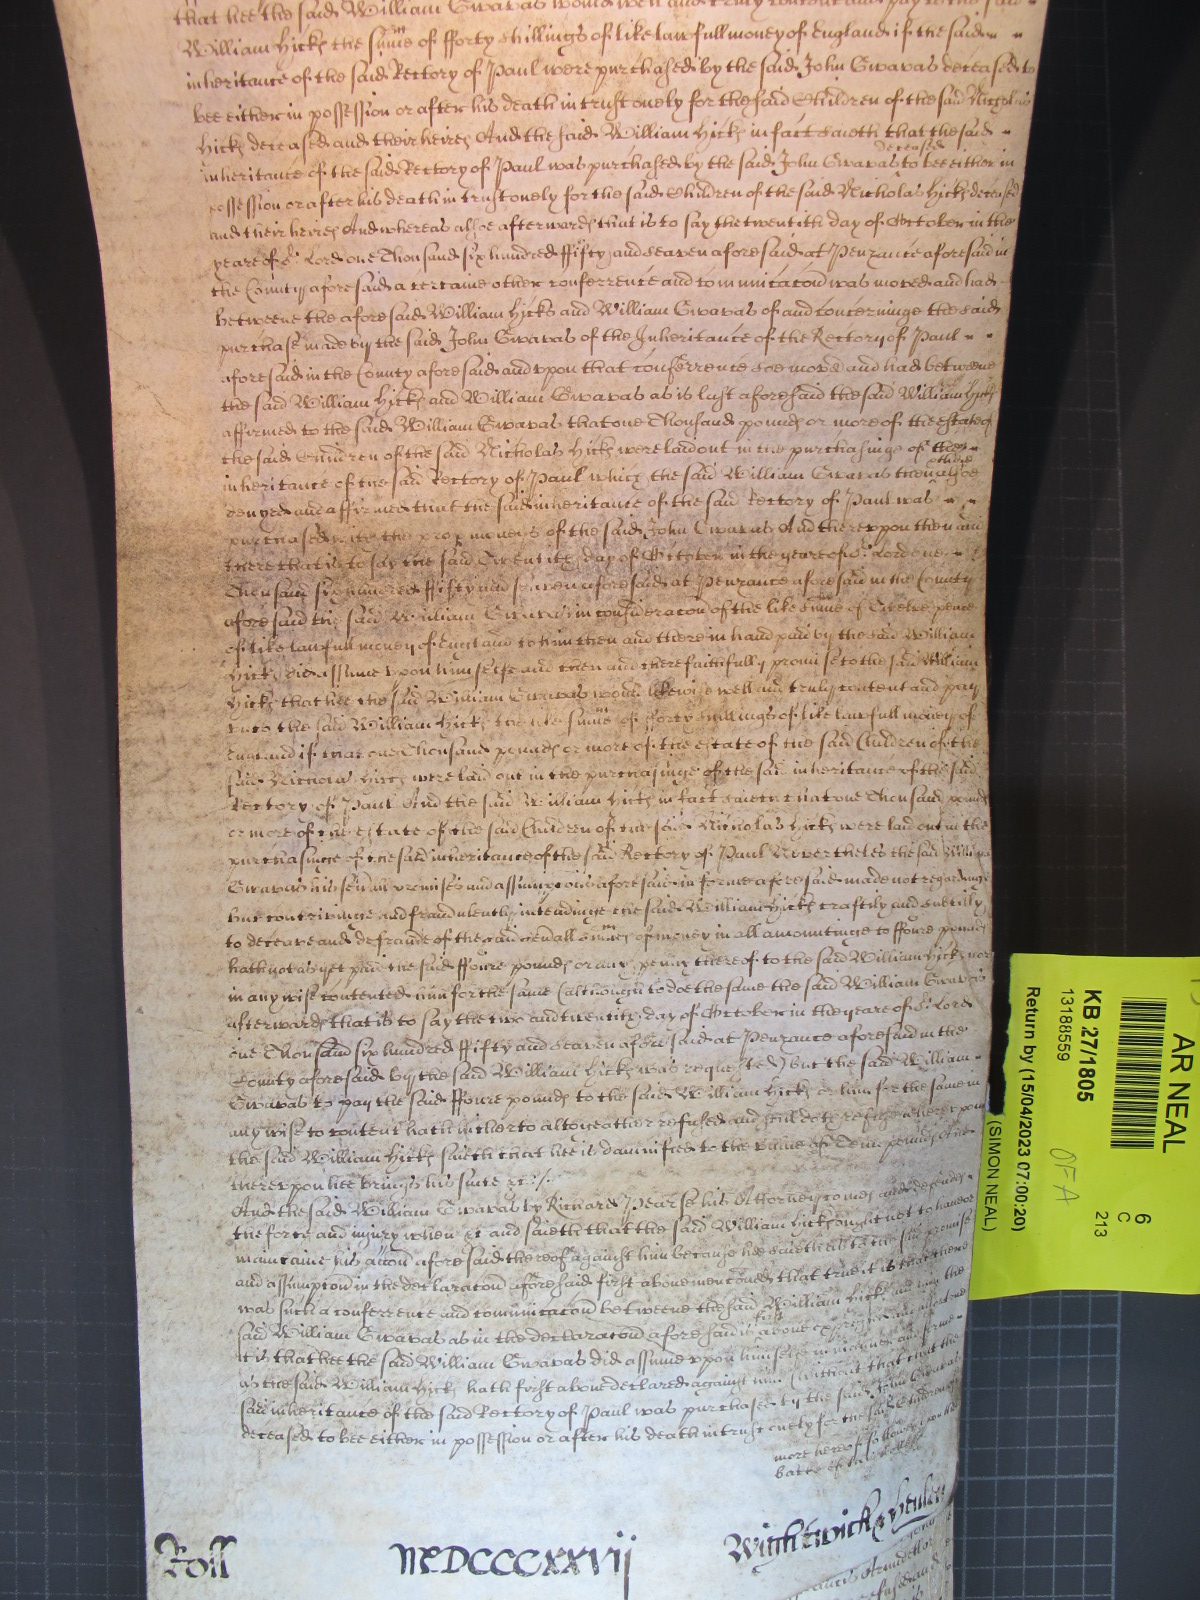 that hee the said William Gwavas would well and truly content and pay to the said
William Hicks the summe of fforty shillings of like lawfull money of England if the said
inheritance of the said Rectory of Paul were purchased by the said John Gwavas deceased to
bee either in possession or after his death in trust onely for the said Children of the said Nicholas
Hicks deceased and their heires And the said William Hicks in fact saieth that the said
inheritance of the said Rectory of Paul was purchased by the said John Gwavas deceased to bee either in
possession or after his death in trust onely for the said Children of the said Nicholas Hicks deceased
and their heires And whereas alsoe afterwards that is to say the twentith day of October in the
yeare of or Lord one Thousand six hundred ffifty and seaven aforesaid at Penzance aforesaid in
the County aforesaid a certaine other conferrence and comunicacon was moved and had
betweene the aforesaid William Hicks and William Gwavas of and concerninge the said
purchase made by the said John Gwavas of the Inheritance of the Rectory of Paul
aforesaid in the County aforesaid and upon that conferrence soe moved and had betweene
the said William Hicks and William Gwavas as is last aforesaid the said William Hicks
affirmed to the said William Gwavas that one Thousand pounds or more of the estate of
the said Children of the said Nicholas Hicks were laid out in the purchasinge of the
inheritance of the said Rectory of Paul which the said William Gwavas then alsoe
denyed and affirmed that the said inheritance of the said Rectory of Paul was
purchased with the proper moneys of the said John Gwavas And thereupon then and
there that is to say the said Twentith day of October in the yeare of or Lord one
Thousand six hundred ffifty and seaven aforesaid at Penzance aforesaid in the County
aforesaid the said William Gwavas in consideracon of the like summe of Twelve pence
of like lawfull money of England to him then and there in hand paid by the said William
Hicks did assume upon himselfe and then and there faithfully promise to the said William
Hicks that hee the said William Gwavas would likewise well and truly content and pay
unto the said William Hicks the like summe of fforty shillings of like lawfull money of
England if that one Thousand pounds or more of the estate of the said Children of the
said Nicholas Hicks were laid out in the purchasinge of the said inheritance of the said
Rectory of Paul And the said William Hicks in fact saieth that one Thousand pounds
or more of the estate of the said Children of the said Nicholas Hicks were laid out in the
purchasinge of the said inheritance of the said Rectory of Paul Nevertheles the said William
Gwavas his sevrall promises and assumpcons aforesaid in forme aforesaid made not regardinge
but contrivinge and fraudulently intendinge the said William Hicks craftily and subtilly
to deceave and defraude of the said sevrall summes of money in all amountinge to ffoure pounds
hath not as yet paid the said ffoure pounds or any penny thereof to the said William Hicks nor
in any wise contented him for the same (although to doe the same the said William Gwavas
afterwards that is to say the two and twentith day of October in the yeare of or Lord
one Thousand six hundred ffifty and seaven aforesaid at Penzance aforesaid in the
County aforesaid by the said William Hicks was requested) but the said William
Gwavas to pay the said ffoure pounds to the said William Hicks or him for the same in
any wise to content hath hitherto altogeather refused and still doth refuse whereupon
the said William Hicks saieth that hee is damnified to the value of Tenn pounds And
thereupon hee brings his suite &c
And the said William Gwavas by Richard Pearse his Attorney comes and defends
the force and injury when &c and saieth that the said William Hicks ought not to have or
maintaine his accon aforesaid thereof against him because hee saieth as to the said promise
and assumpcon in the declaracon aforesaid first above menconed that true it is that there
was such a conferrence and comunicacon betweene the said William Hicks and him the
said William Gwavas as in the declaracon aforesaid is first above expressed and alsoe true
it is that hee the said William Gwavas did assume upon himselfe in manner and forme
as the said William Hicks hath first above declared against him (without that that the
said inheritance of the said Rectory of Paul was purchased by the said John Gwavas
deceased to bee either in possession or after his death in trust onely for the said Children
more hereof followes upon the
backe of this Roll
Roll MDCCCXXVII Wightwick & Henley
AR NEAL
KB 27/1805
13188559
Return by (15/04/2023 07:00:20)
(SIMON NEAL)
6
C
213
OFA